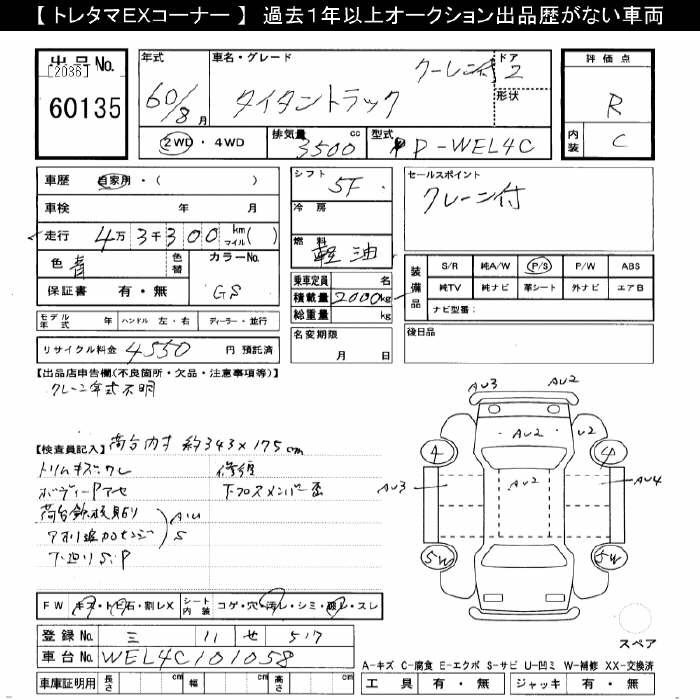 【 トレタマEXコーナー 】 過去１年以上オークション出品歴がない車両
出品No.
[2036]
60135
年式
60/8月
車名・グレード
クーレン付
タイタントラック
ドア
2
形状
2WD・4WD
排気量
3500 cc
型式
P-WEL4C
評価点
R
内装
C
車歴 自家用・( )
車検 年 月
走行 4万3千300 km マイル( )
色 青
色替
カラーNo.
GS
保証書 有・無
シフト
5F
冷房
燃料
軽油
乗車定員 名
積載量 2000kg
総重量 kg
セールスポイント
クレーン付
装備品
S/R 純A/W P/S P/W ABS
純TV 純ナビ 革シート 外ナビ エアB
ナビ型番:
モデル年式 年 ハンドル 左・右 ディーラー・並行
リサイクル料金 4550 円 預託済
名変期限
月 日
後日品
【出品店申告欄(不良箇所・欠品・注意事項等)】
クレーン年式不明
【検査員記入】 荷台内寸 約343×175cm
トリムキズワレ
ボディーPアセ
荷台鉄板貼り
下廻りS.P
AU3
AU2
AU2
U2
4
4
AU3
AU2
AU4
5W
5W
スペア
FW キズ・トビ石・割レX
シート内装 コゲ・穴・汚レ・シミ・破レ・スレ
登録No. 三 11 せ 517
車台No. WEL4C101058
車庫証明用 長さ cm 幅 cm 高さ cm
A-キズ C-腐食 E-エクボ S-サビ U-凹ミ W-補修 XX-交換済
工具 有・無 ジャッキ 有・無